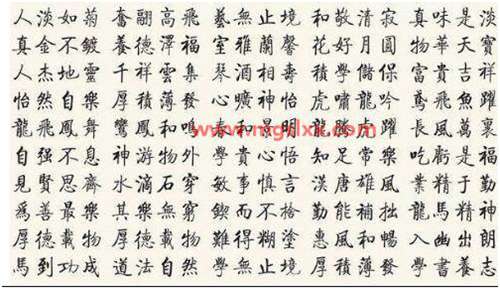 人淡如菊 奮翮高飛 藝無止境 和敬清寂 真味是淡
真金不鍍 養德澤福 室雅蘭馨 花好月圓 物華天寶
人杰地靈 千祥雲集 琴酒相壽 積學儲保 富貴吉祥
怡然自樂 厚積薄發 心曠神怡 虎嘯龍吟 鳶飛魚躍
龍飛鳳舞 鸞鳳和鳴 春和景明 龍騰虎躍 長風萬裏
www.mgslxx.com
自強不息 神游物外 學貴心悟 知足常樂 吃虧是福
見賢思齊 水滴石穿 敏事慎言 漢唐雄風 業精于勤
為善最樂 其樂無窮 鍥而不捨 勤能補拙 龍馬精神
厚德載物 厚德載物 難得糊塗 惠風和暢 入幽出朗
馬到功成 道法自然 學無止境 厚積薄發 學書養志